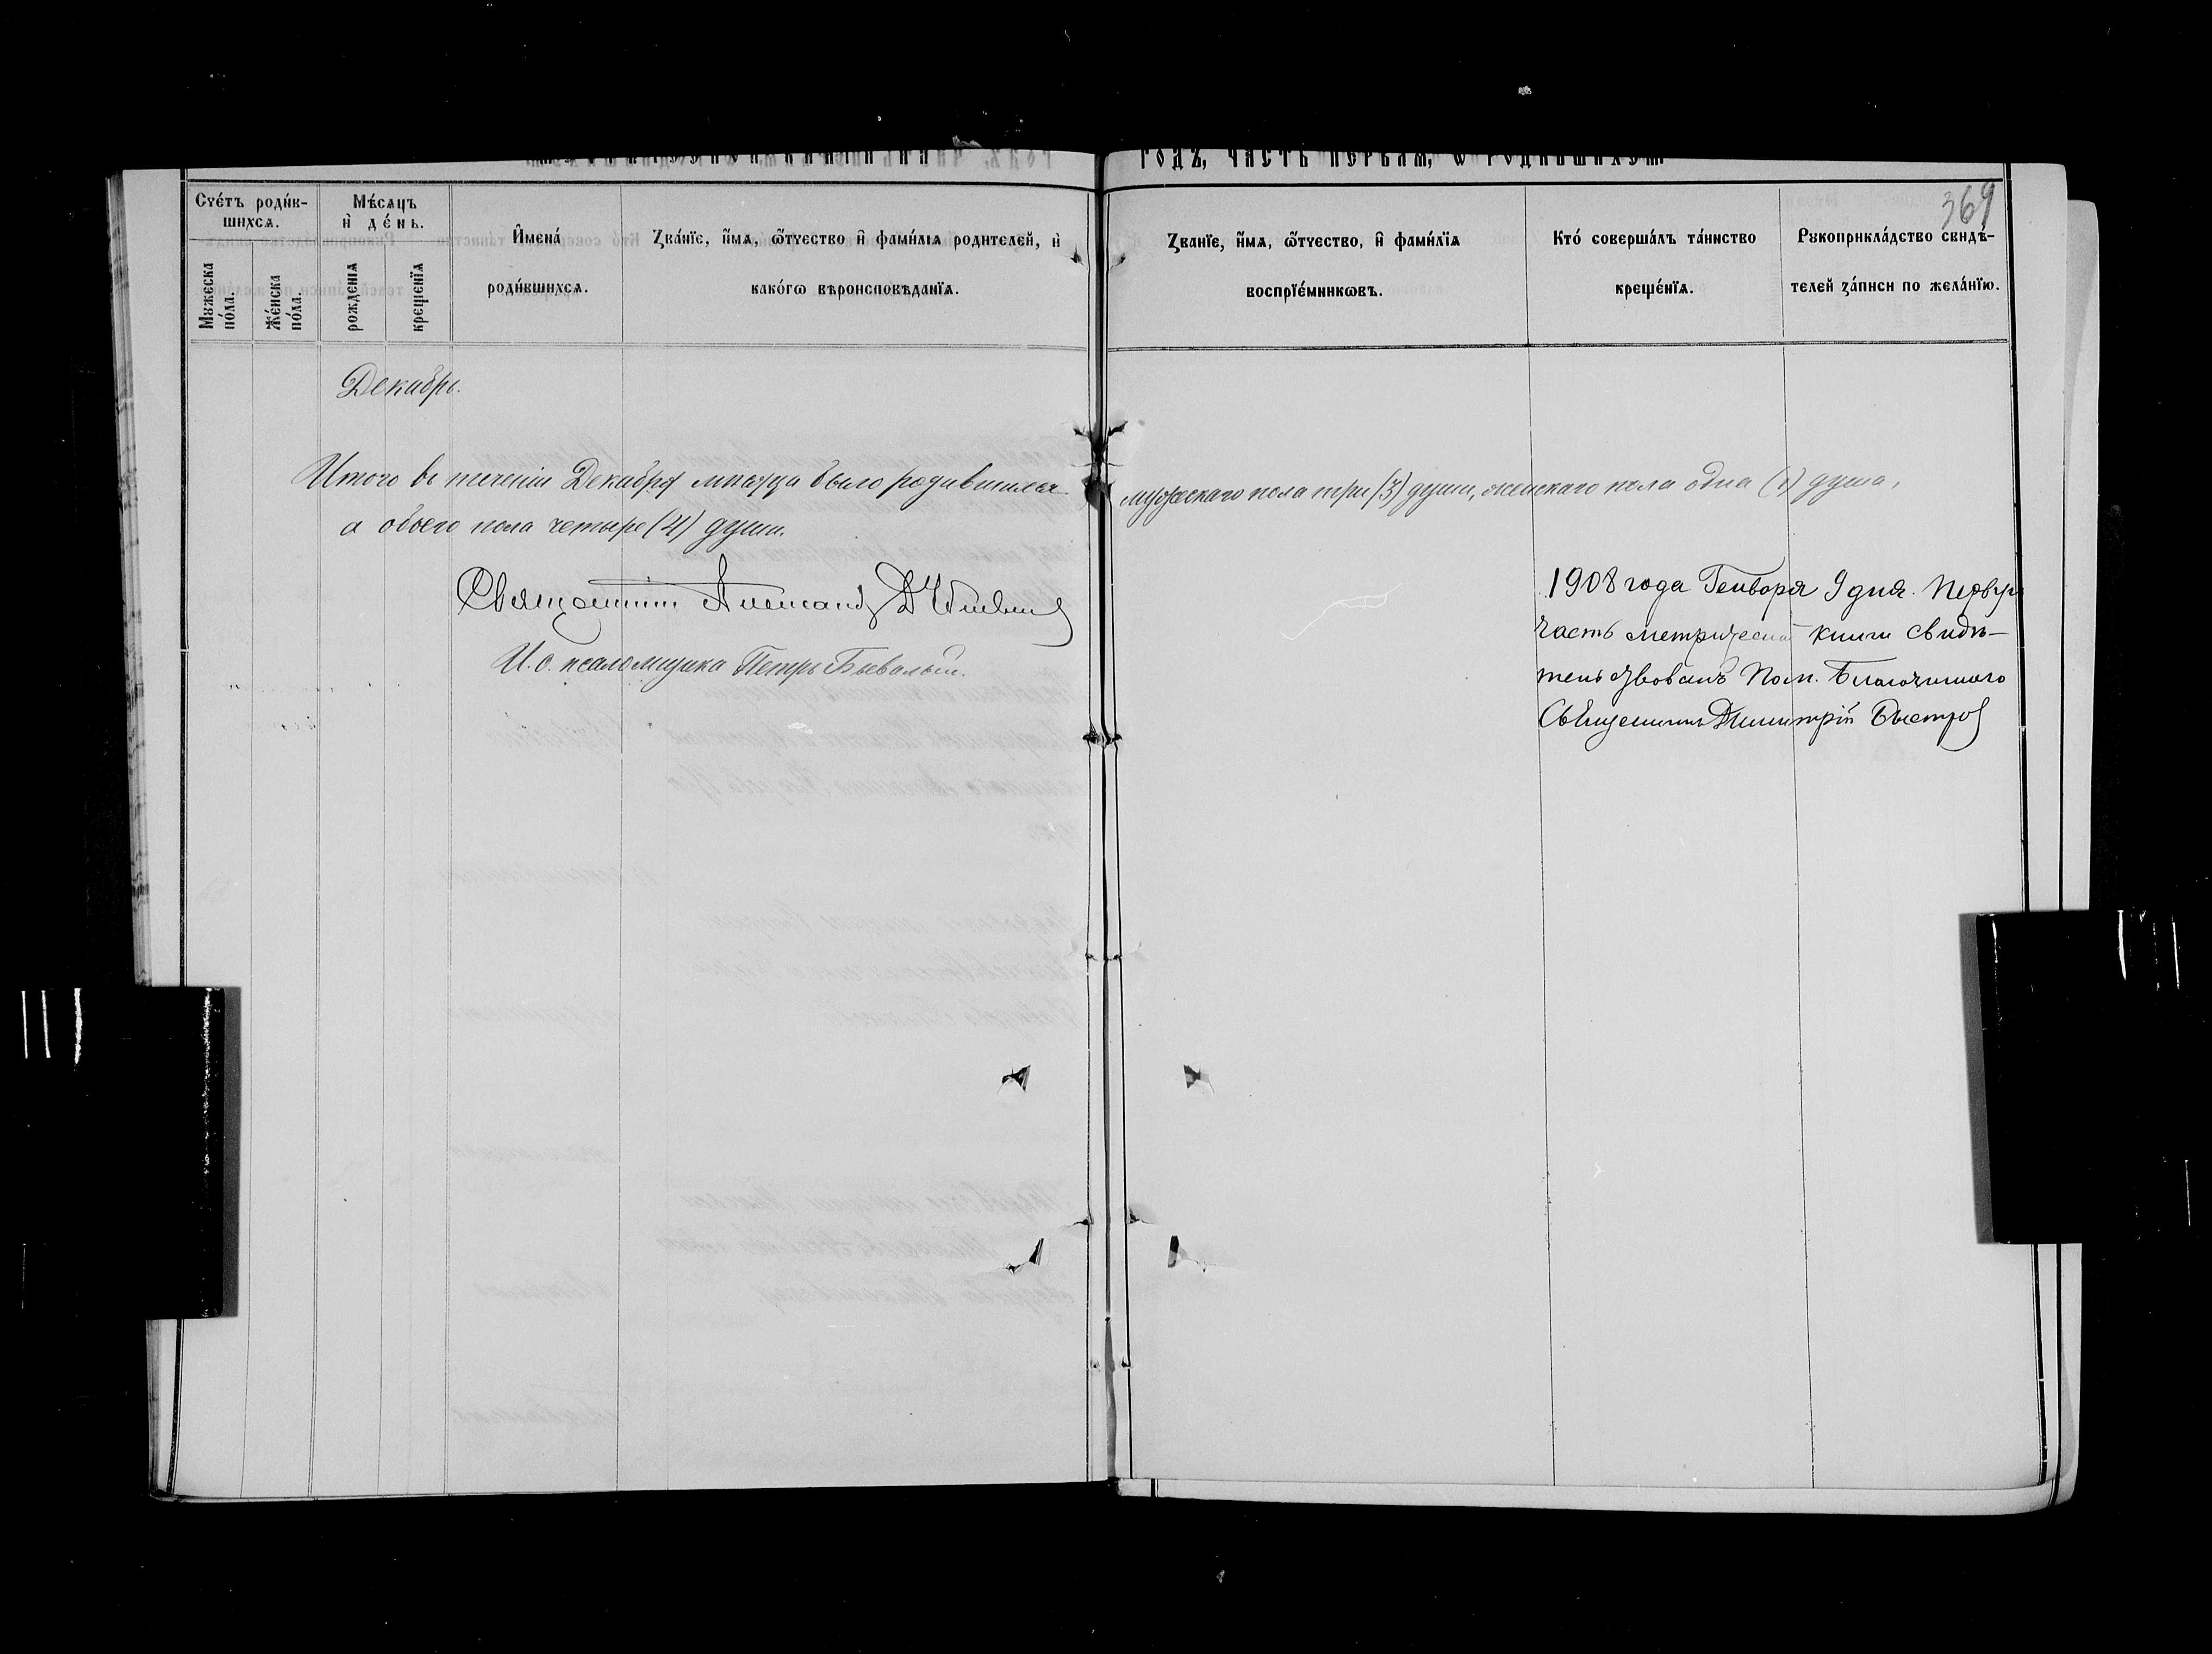 годъ, часть первая, ѡ родившихся
369
Счетъ родив-
шихся.
Мужеска пола.
Женска пола.
Мѣсяцъ
и день.
рожденія
крещенія
Имена
родившихся.
Званіе, имя, ѿчество и фамилія родителей, и
какогѡ вѣроисповѣданія.
Званіе, имя, ѿчество, и фамилія
воспріемникѡвъ.
Кто совершалъ таинство
крещенія.
Рукоприкладство свидѣ-
телей записи по желанію.
Декабрь.
Итого въ теченіи Декабря мѣсяца было родившихся мужескаго пола три (3) души, женскаго пола одна (1) душа,
а обоего пола четыре (4) души.
Священникъ Александръ
И. о. псаломщика Петръ Бывалый.
1908 года Генваря 9 дня. Первую
часть метрической книги свидѣ-
тельствовалъ Пом. Благочиннаго
Священникъ Димитрій Быстровъ